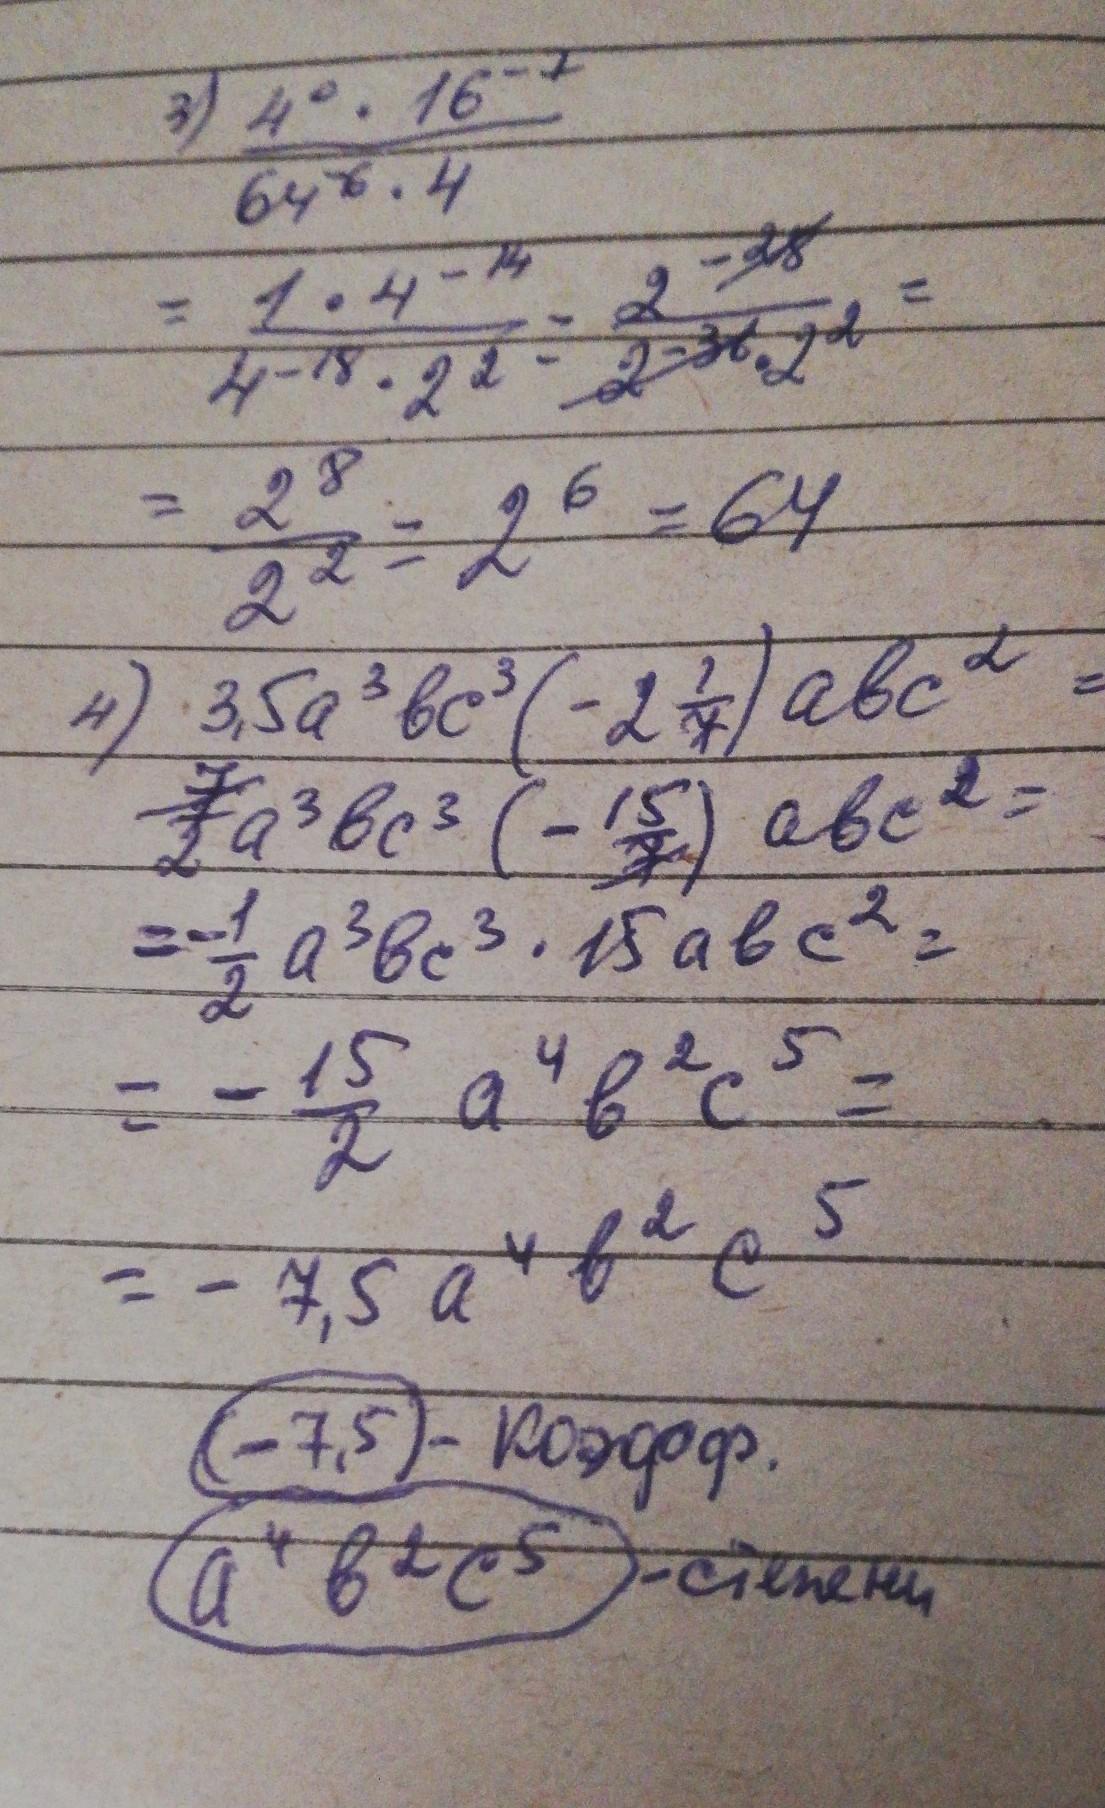 3) (4⁰ · 16⁻⁷) / (64⁻⁶ · 4)
= (1 · 4⁻¹⁴) / (4⁻¹⁸ · 2²) = 2⁻²⁸ / (2⁻³⁶ · 2²) =
= 2⁸ / 2² = 2⁶ = 64
4) 3,5a³bc³ (-2 1/7) abc² =
7/2 a³bc³ (- 15/7) abc² =
= -1/2 a³bc³ · 15abc² =
= - 15/2 a⁴b²c⁵ =
= - 7,5 a⁴b²c⁵
(-7,5) - коэфф.
a⁴b²c⁵ - степени